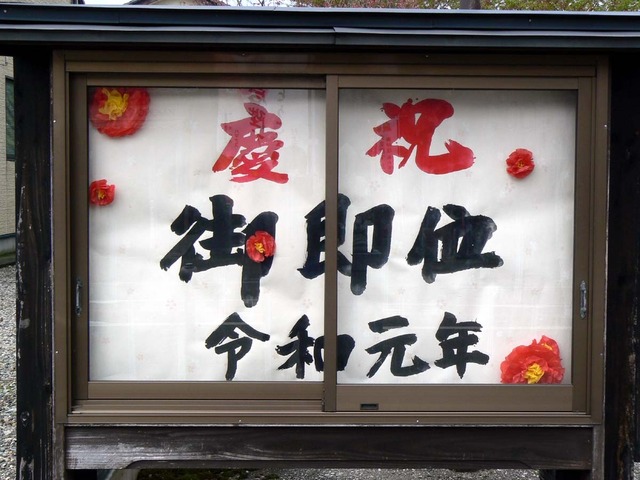 慶祝
御即位
令和元年